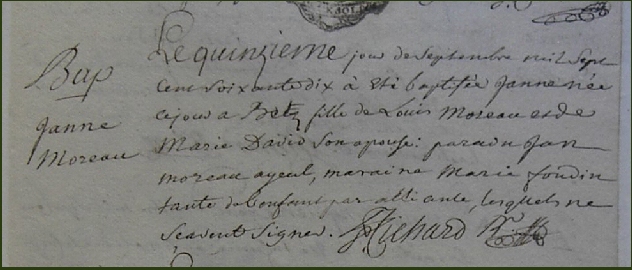 Bap
Janne
Moreau
Le quinzieme jour de septembre mil sept
cent soixante dix à eté baptisée Janne née
cejour a fille de Louis Moreau et de
Marie David son epouse: parain Jan
moreau ayeul, maraine Marie
tante de lenfant par alliance, lesquels ne
scavent signer. Richard